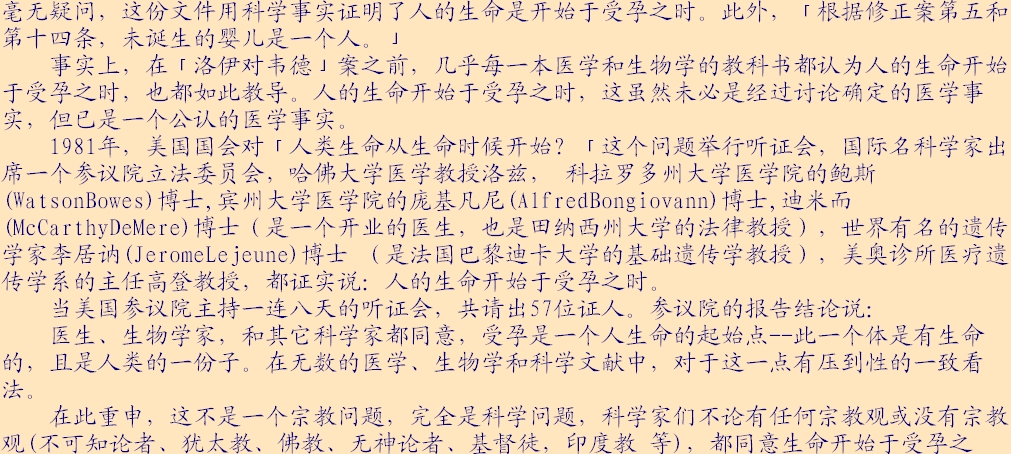 毫无疑问，这份文件用科学事实证明了人的生命是开始于受孕之时。此外，「根据修正案第五和
第十四条，未诞生的婴儿是一个人。」
事实上，在「洛伊对韦德」案之前，几乎每一本医学和生物学的教科书都认为人的生命开始
于受孕之时，也都如此教导。人的生命开始于受孕之时，这虽然未必是经过讨论确定的医学事
实，但已是一个公认的医学事实。
1981年，美国国会对「人类生命从生命时候开始？「这个问题举行听证会，国际名科学家出
席一个参议院立法委员会，哈佛大学医学教授洛兹， 科拉罗多州大学医学院的鲍斯
(WatsonBowes)博士,宾州大学医学院的庞基凡尼(AlfredBongiovann)博士,迪米而
(McCarthyDeMere)博士（是一个开业的医生，也是田纳西州大学的法律教授），世界有名的遗传
学家李居讷(JeromeLejeune)博士 （是法国巴黎迪卡大学的基础遗传学教授），美奥诊所医疗遗
传学系的主任高登教授，都证实说：人的生命开始于受孕之时。
当美国参议院主持一连八天的听证会，共请出57位证人。参议院的报告结论说：
医生、生物学家，和其它科学家都同意，受孕是一个人生命的起始点--此一个体是有生命
的，且是人类的一份子。在无数的医学、生物学和科学文献中，对于这一点有压到性的一致看
法。
在此重申，这不是一个宗教问题，完全是科学问题，科学家们不论有任何宗教观或没有宗教
观(不可知论者、犹太教、佛教、无神论者、基督徒，印度教 等)，都同意生命开始于受孕之